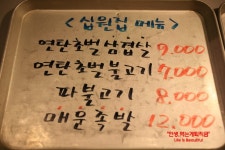 <십원집 메뉴>
연탄초벌삼겹살 9,000
연탄초벌불고기 7,000
파불고기 8,000
매운족발 12,000
Life is Beautiful